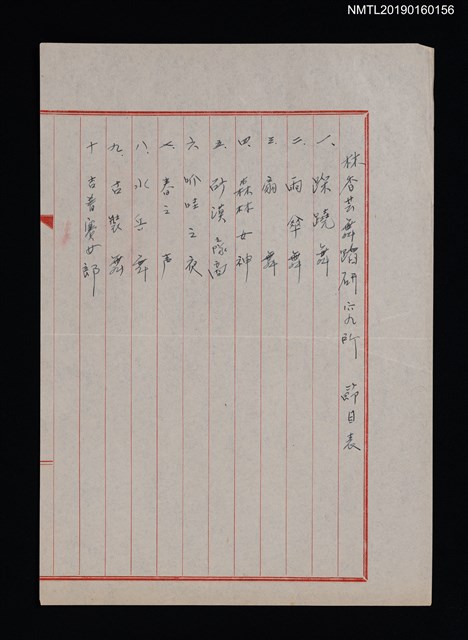 NMTL20190160156
林香芸舞蹈研究所 節目表
一、踩蹺舞
二、雨傘舞
三、扇舞
四、森林女神
五、砂漠
六、爪哇之夜
七、春之声
八、水兵舞
九、古裝舞
十 吉普賽女郎